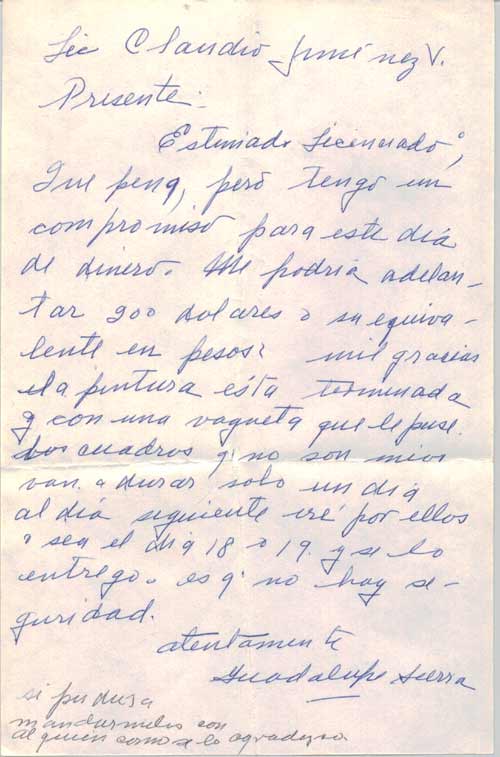 Lic Claudio Jiménez V.
Presente.
Estimado Licenciado,
Que pena, pero tengo un
compromiso para este dia
de dinero. Me podria adelan-
tar 200 dolares o su equiva-
lente en pesos? mil gracias
la pintura ésta terminada
y con una vagueta que le puse.
Los cuadros q' no son mios
van a durar solo un dia
al día siguiente iré por ellos
o sea el dia 18 o 19. y se lo
entrego. es q' no hay se-
guridad.
atentamente
Guadalupe Sierra
si pudiera
mandarmelos con
alguien como se lo agradezco